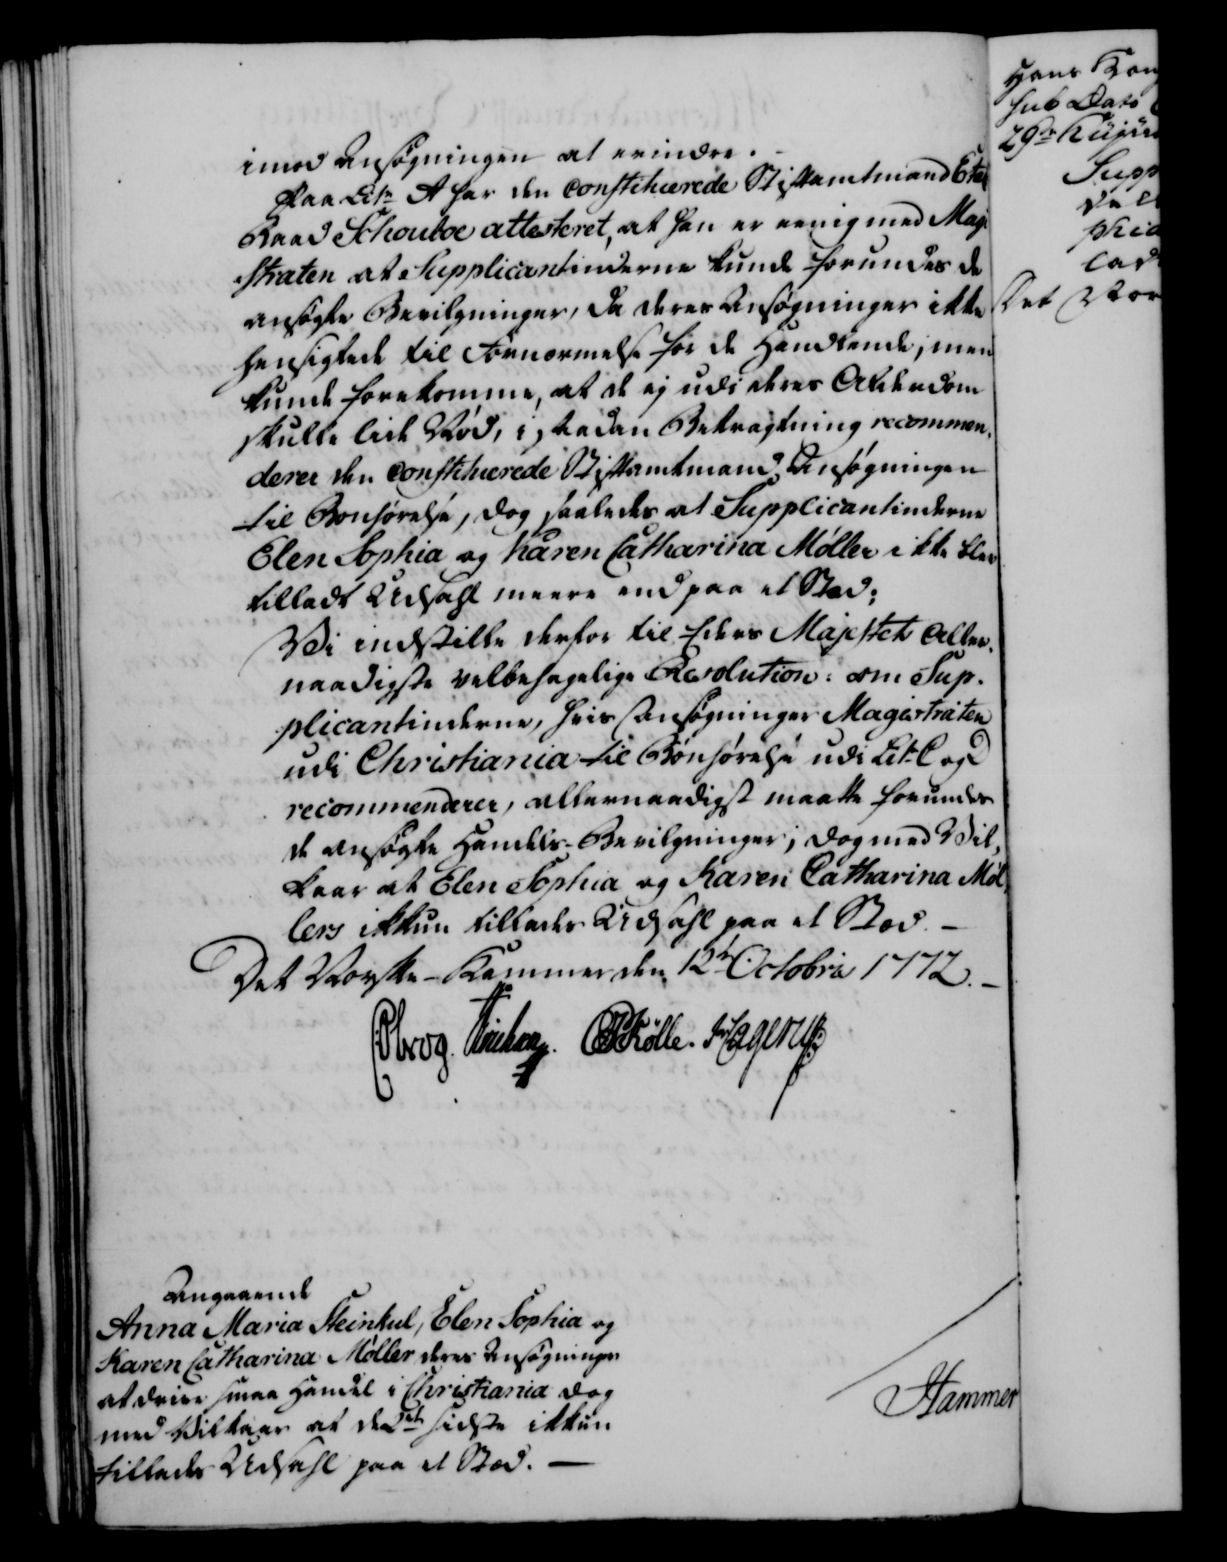 imod Ansøgningen at erindre. -
Paa Litr. A har den constituerede Stiftamtmand Etats
Raad Schouboe attesteret, at han er eenig med Magi-
straten at Supplicantinderne kunde forundes de
ansøgte Bevilgninger, da deres Ansøgninger ikke
hensigtede til Fornærmelse for de Handlende, men
kunde forekomme, at de ej udi deres Alderdom
skulle lide Nød, i saadan Betragtning recommen-
derer den constituerede Stiftamtmand Ansøgningen
til Bønhørelse, dog saaledes at Supplicantinderne
Elen Sophia og Karen Catharina Møller ikke blev
tilladt Udsahl meere end paa et Sted;
Vi indstille derfor til Eders Majestets Aller-
naadigste velbehagelige Resolution: om Sup-
plicantinderne, hvis Ansøgninger Magistraten
udi Christiania til Bønhørelse udi Lit. C og D
recommenderer, allernaadigst maatte forundes
de ansøgte Handels-Bevilgninger; dog med Vil-
kaar at Elen Sophia og Karen Catharina Møl-
lers ikkun tillades Udsahl paa et Sted. -
Det Norske-Kammer den 12te Octobris 1772. -
Holle. Hagerup
Angaaende
Anna Maria Steinkul, Elen Sophia og
Karen Catharina Møller deres Ansøgninger
at drive smaa Handel i Christiania dog
med Vilkaar at de 2de sidste ikkun
tillades Udsahl paa et Sted. -
Hammer
Hans Kong
sub Dato
29de
Supp
Det Nor